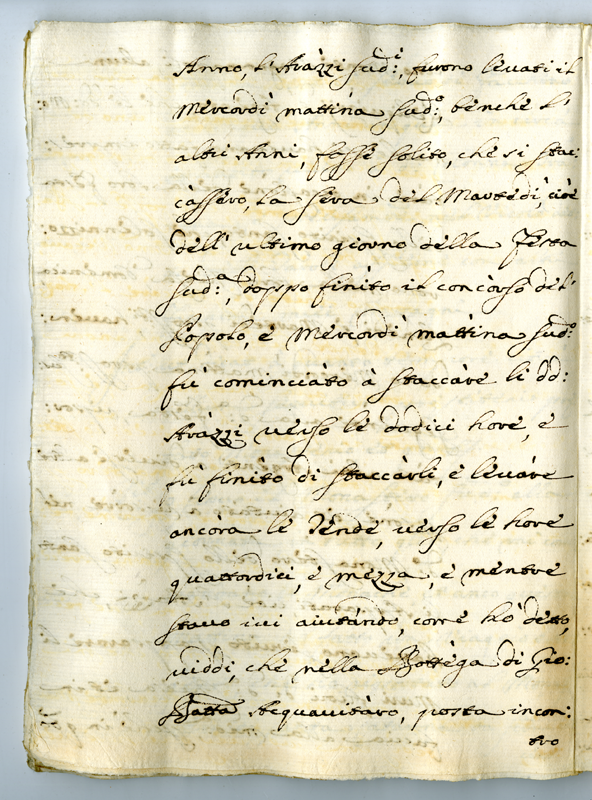 Anno, l'Aràzzi sud:i, furono levati il
Mercordì mattina sud:o, benche l'
altri Anni, fosse solito, che si stac:
càssero, la sera del Martedì, cioè
dell'ultimo giorno della Festa
sud:a, doppo finito il concòrso del
Popolo, e Mercordì mattina sud:o
fù cominciàto à staccàre li dd:
Aràzzi verso le dodici hore, e
fù finito di staccàrli, e levàre
ancòra le Tende, verso le hore
quattordici, e mezza, e mentre
stavo ivi aiutàndo, come hò detto,
viddi, che nella Bottèga di Gio:
Batta Acquavitàro, posta incon:
tro